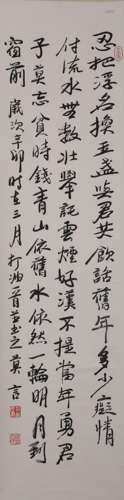 忍把浮名换玉盏与君共饮话旧年多少痴情
付流水无数壮举託云烟好汉不提当年勇君
子莫忘贫时钱青山依旧水依然一轮明月到
窗前 岁次辛卯时在三月打油 书之莫言